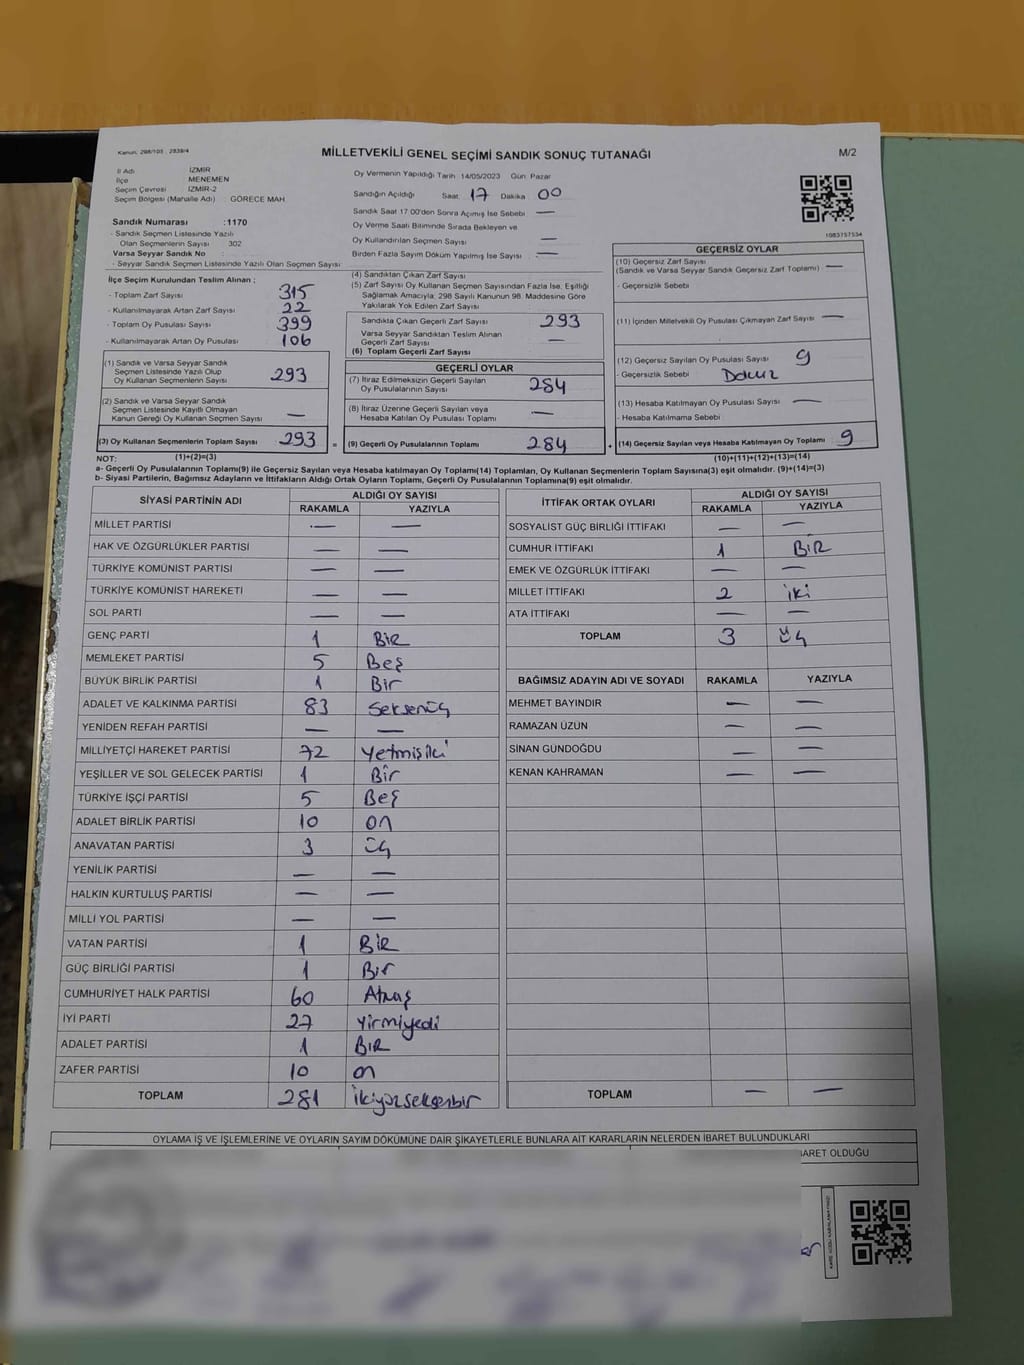 Kanun: 298/105 , 2839/4
MİLLETVEKİLİ GENEL SEÇİMİ SANDIK SONUÇ TUTANAĞI
M/2
İl Adı İZMİR
İlçe MENEMEN
Seçim Çevresi İZMİR-2
Seçim Bölgesi (Mahalle Adı) : GÖRECE MAH
Sandık Numarası :1170
- Sandık Seçmen Listesinde Yazılı
Olan Seçmenlerin Sayısı 302
Varsa Seyyar Sandık No :
- Seyyar Sandık Seçmen Listesinde Yazılı Olan Seçmen Sayısı
Oy Vermenin Yapıldığı Tarih: 14/05/2023 Gün: Pazar
Sandığın Açıldığı Saat: 17 Dakika: 00
Sandık Saat 17:00'den Sonra Açılmış İse Sebebi : —
Oy Verme Saati Bitiminde Sırada Bekleyen ve
Oy Kullandırılan Seçmen Sayısı : —
Birden Fazla Sayım Döküm Yapılmış İse Sayısı : —
1983757534
İlçe Seçim Kurulundan Teslim Alınan ;
- Toplam Zarf Sayısı : 315
- Kullanılmayarak Artan Zarf Sayısı : 22
- Toplam Oy Pusulası Sayısı : 399
- Kullanılmayarak Artan Oy Pusulası : 106
(1) Sandık ve Varsa Seyyar Sandık
Seçmen Listesinde Yazılı Olup
Oy Kullanan Seçmenlerin Sayısı 293
(2) Sandık ve Varsa Seyyar Sandık
Seçmen Listesinde Kayıtlı Olmayan
Kanun Gereği Oy Kullanan Seçmen Sayısı —
(3) Oy Kullanan Seçmenlerin Toplam Sayısı 293
(1)+(2)=(3)
(4) Sandıktan Çıkan Zarf Sayısı
(5) Zarf Sayısı Oy Kullanan Seçmen Sayısından Fazla İse, Eşitliği
Sağlamak Amacıyla; 298 Sayılı Kanunun 98. Maddesine Göre
Yakılarak Yok Edilen Zarf Sayısı
Sandıkta Çıkan Geçerli Zarf Sayısı 293
Varsa Seyyar Sandıktan Teslim Alınan
Geçerli Zarf Sayısı —
(6) Toplam Geçerli Zarf Sayısı
GEÇERLİ OYLAR
(7) İtiraz Edilmeksizin Geçerli Sayılan
Oy Pusulalarının Sayısı 284
(8) İtiraz Üzerine Geçerli Sayılan veya
Hesaba Katılan Oy Pusulası Toplamı —
= (9) Geçerli Oy Pusulalarının Toplamı 284
GEÇERSİZ OYLAR
(10) Geçersiz Zarf Sayısı
(Sandık ve Varsa Seyyar Sandık Geçersiz Zarf Toplamı) : —
- Geçersizlik Sebebi
(11) İçinden Milletvekili Oy Pusulası Çıkmayan Zarf Sayısı : —
(12) Geçersiz Sayılan Oy Pusulası Sayısı : 9
- Geçersizlik Sebebi : Dokuz
(13) Hesaba Katılmayan Oy Pusulası Sayısı : —
- Hesaba Katılmama Sebebi :
+ (14) Geçersiz Sayılan veya Hesaba Katılmayan Oy Toplamı : 9
(10)+(11)+(12)+(13)=(14)
NOT:
a- Geçerli Oy Pusulalarının Toplamı(9) ile Geçersiz Sayılan veya Hesaba katılmayan Oy Toplamı(14) Toplamları, Oy Kullanan Seçmenlerin Toplam Sayısına(3) eşit olmalıdır. (9)+(14)=(3)
b- Siyasi Partilerin, Bağımsız Adayların ve İttifakların Aldığı Ortak Oyların Toplamı, Geçerli Oy Pusulalarının Toplamına(9) eşit olmalıdır.
SİYASİ PARTİNİN ADI ALDIĞI OY SAYISI
RAKAMLA YAZIYLA
MİLLET PARTİSİ — —
HAK VE ÖZGÜRLÜKLER PARTİSİ — —
TÜRKİYE KOMÜNİST PARTİSİ — —
TÜRKİYE KOMÜNİST HAREKETİ — —
SOL PARTİ — —
GENÇ PARTİ 1 BİR
MEMLEKET PARTİSİ 5 Beş
BÜYÜK BİRLİK PARTİSİ 1 Bir
ADALET VE KALKINMA PARTİSİ 83 Seksenüç
YENİDEN REFAH PARTİSİ — —
MİLLİYETÇİ HAREKET PARTİSİ 72 Yetmişiki
YEŞİLLER VE SOL GELECEK PARTİSİ 1 Bir
TÜRKİYE İŞÇİ PARTİSİ 5 Beş
ADALET BİRLİK PARTİSİ 10 on
ANAVATAN PARTİSİ 3 üç
YENİLİK PARTİSİ — —
HALKIN KURTULUŞ PARTİSİ — —
MİLLİ YOL PARTİSİ — —
VATAN PARTİSİ 1 BİR
GÜÇ BİRLİĞİ PARTİSİ 1 Bir
CUMHURİYET HALK PARTİSİ 60 Atmış
İYİ PARTİ 27 yirmiyedi
ADALET PARTİSİ 1 BIR
ZAFER PARTİSİ 10 on
TOPLAM 281 İkiyüzseksenbir
İTTİFAK ORTAK OYLARI ALDIĞI OY SAYISI
RAKAMLA YAZIYLA
SOSYALİST GÜÇ BİRLİĞİ İTTİFAKI — —
CUMHUR İTTİFAKI 1 BİR
EMEK VE ÖZGÜRLÜK İTTİFAKI — —
MİLLET İTTİFAKI 2 iki
ATA İTTİFAKI — —
TOPLAM 3 üç
BAĞIMSIZ ADAYIN ADI VE SOYADI RAKAMLA YAZIYLA
MEHMET BAYINDIR — —
RAMAZAN ÜZÜN — —
SİNAN GÜNDOĞDU — —
KENAN KAHRAMAN — —
TOPLAM — —
OYLAMA İŞ VE İŞLEMLERİNE VE OYLARIN SAYIM DÖKÜMÜNE DAİR ŞİKAYETLERLE BUNLARA AİT KARARLARIN NELERDEN İBARET BULUNDUKLARI
BARET OLDUĞU